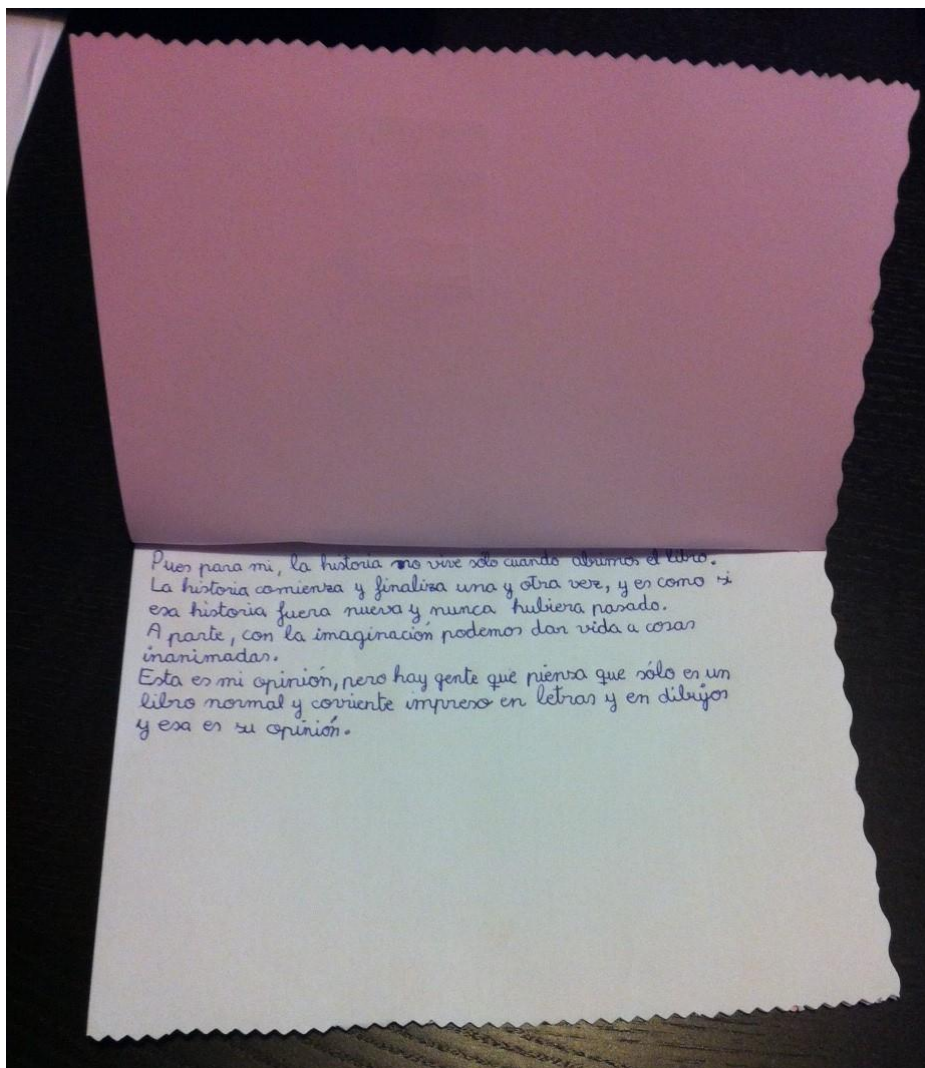 Pues para mi, la historia no vive sólo cuando abrimos el libro.
La historia comienza y finaliza una y otra vez, y es como si
esa historia fuera nueva y nunca hubiera pasado.
A parte, con la imaginación podemos dar vida a cosas
inanimadas.
Esta es mi opinión, pero hay gente que piensa que sólo es un
libro normal y corriente impreso en letras y en dibujos
y esa es su opinión.